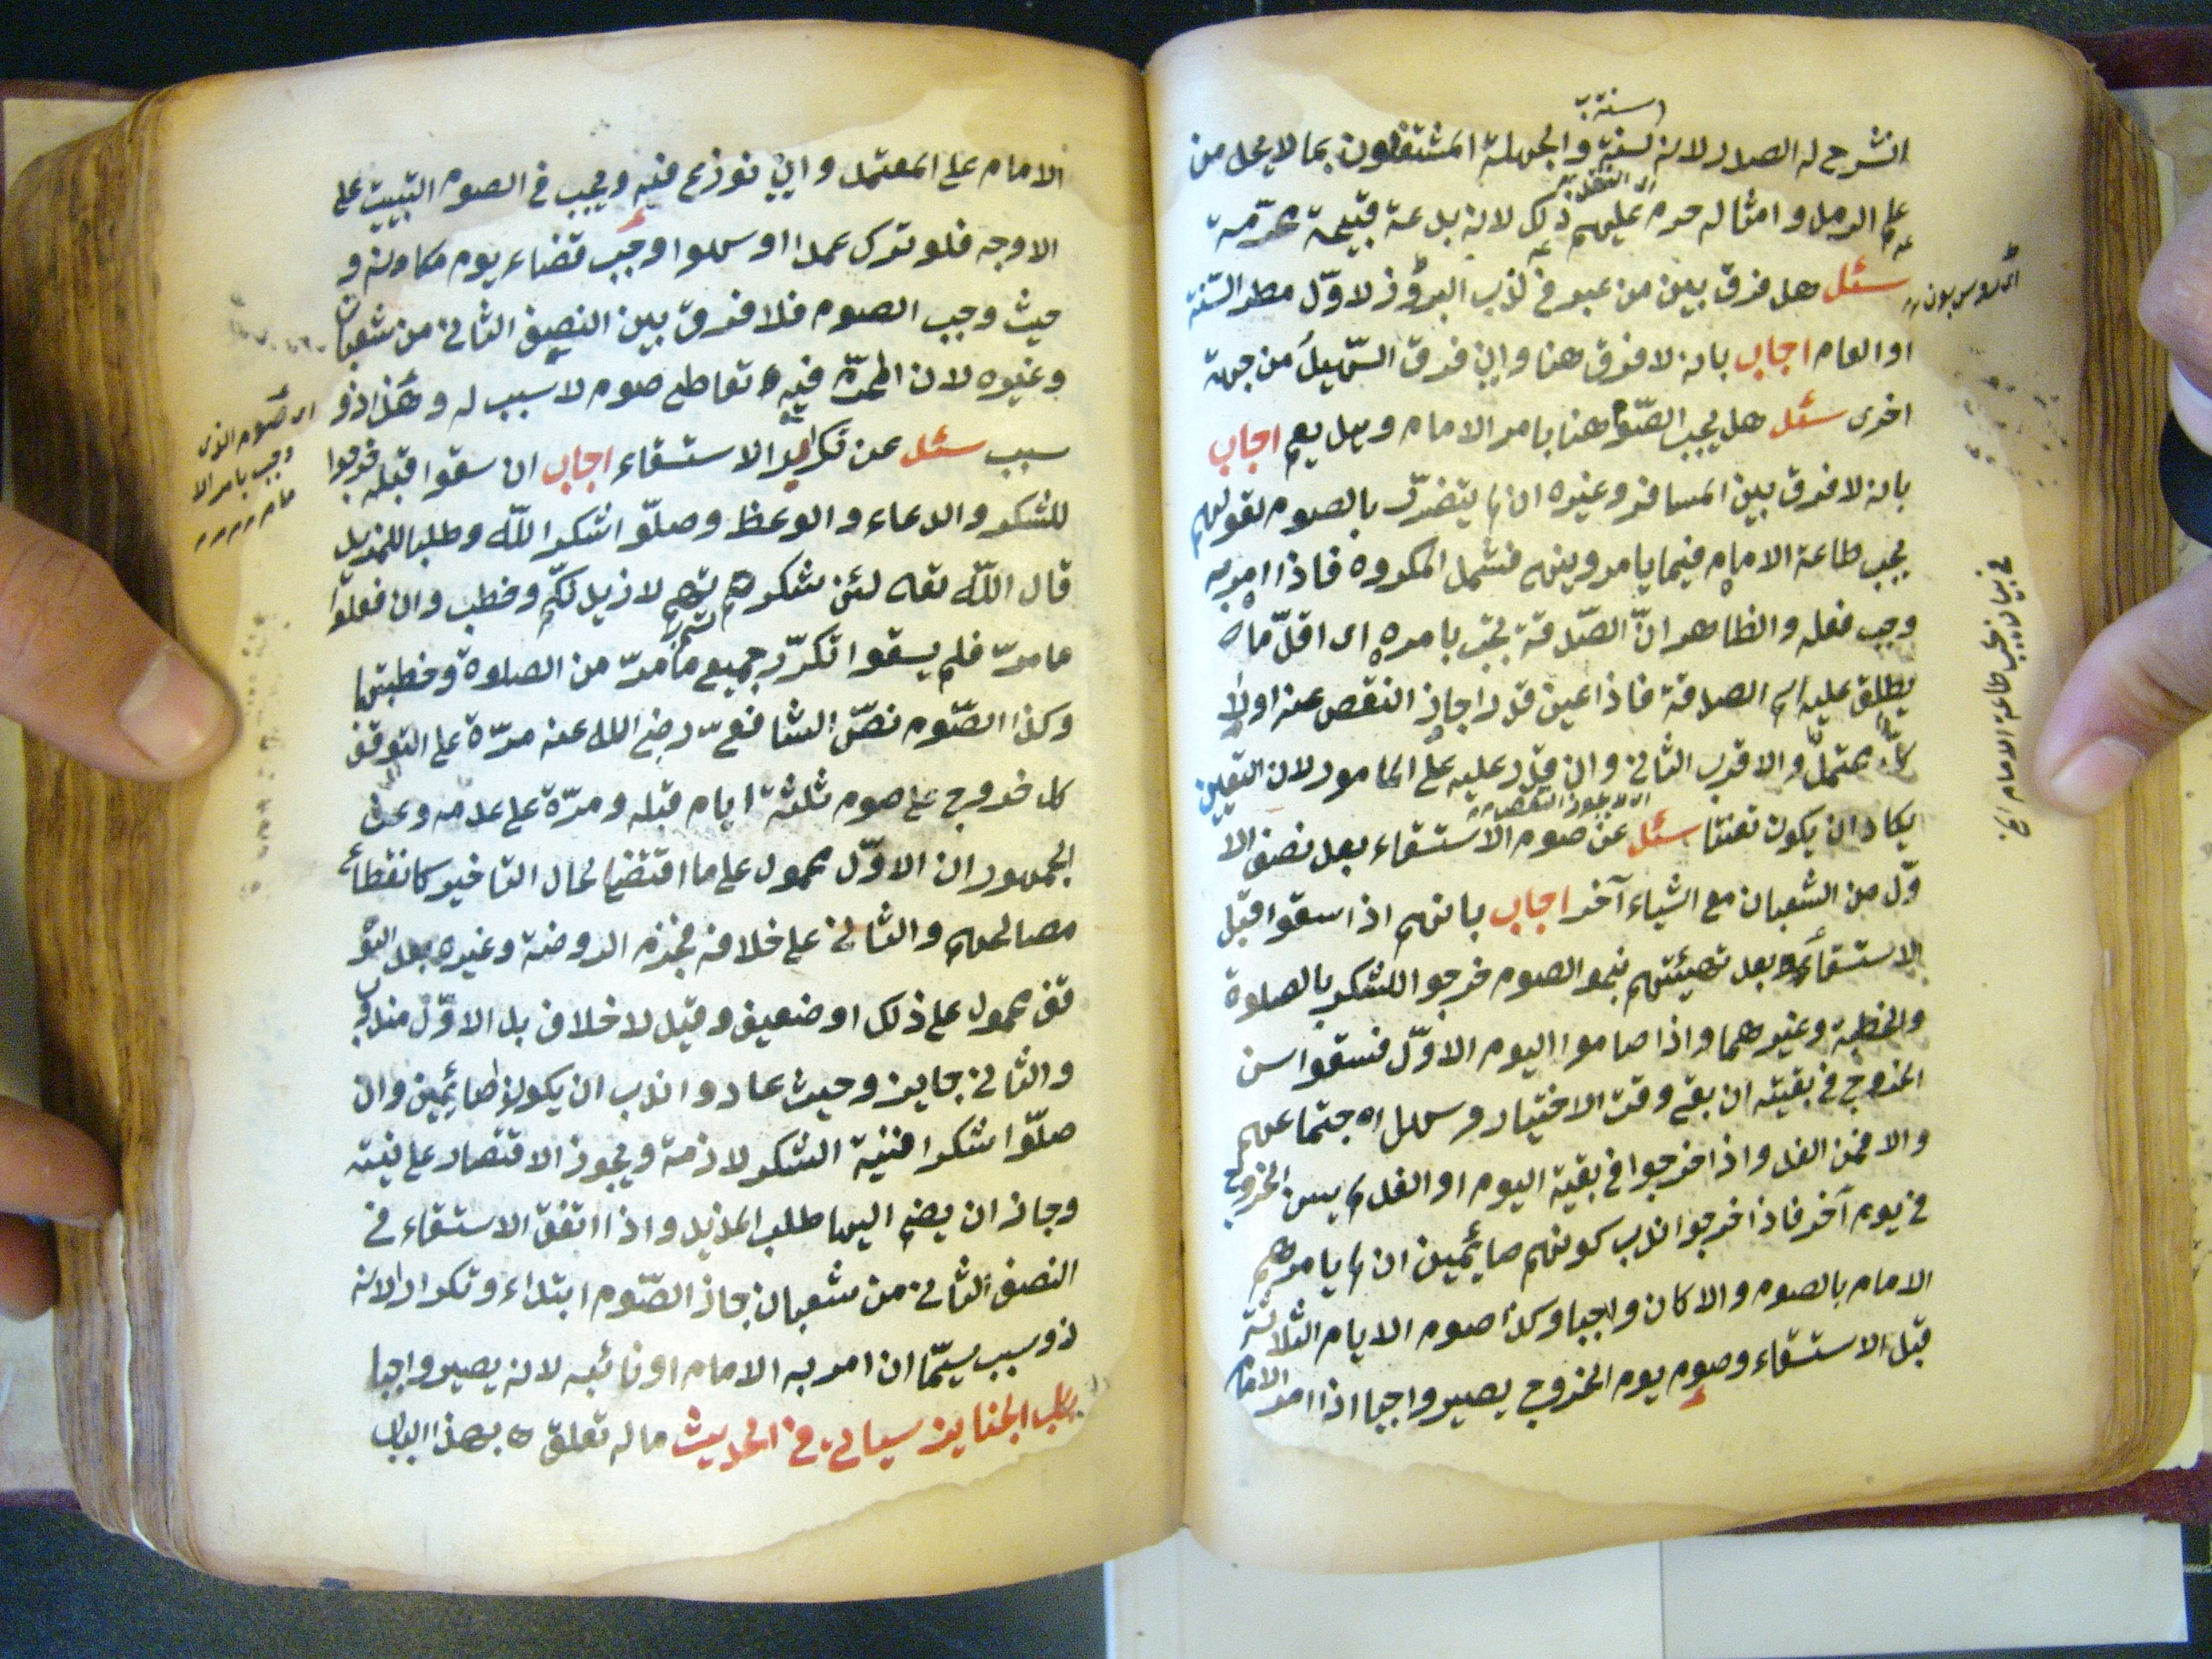 انشرح له الصدر لانه لسنة والجهلة المشتغلون بما لا يحل من
علم الرمل وامثاله حرم عليهم ذلك لانه بدعة قبيحة محرمة
سئل هل فرق بين من عبر في ندب البروز لاول مطر السنة
او العام اجاب بانه لا فرق هنا وان فرق السهيلى من جهة
اخرى سئل هل يجب الصوم هنا بامر الامام وهل يعم اجاب
بانه لا فرق بين المسافر وغيره ان لم يتضرر بالصوم لقولهم
يجب طاعة الامام فيما يامر وينهى فشمل المكروه فاذا امر به
وجب فعله والظاهر ان الصدقة تجب بامره اى اقل ما
يطلق عليه اسم الصدقة فاذا عين قدرا جاز النقص عنه اولا
كل محتمل والاقرب الثانى وان قدر عليه على المامور لان التعيين
اى لا يجوز النقص
يكاد ان يكون تعنتا سئل عن صوم الاستسقاء بعد نصف الا
ول من الشعبان مع اشياء آخر اجاب بانهم اذا سقوا قبل
الاستسقاء وبعد تهيئتهم نحو الصوم خرجوا للشكر بالصلوة
والخطبة وغيرهما واذا صاموا اليوم الاول فسقوا سن
الخروج في بقيته ان بقى وقت الاختيار وسهل اجتماعهم
والا فمن الغد واذا خرجوا في بقية اليوم او الغد لم يسن الخروج
في يوم آخر فاذا خرجوا ندب كونهم صائمين ان لم يامرهم
الامام بالصوم والا كان واجبا وكذا صوم الايام الثلاثة
قبل الاستسقاء وصوم يوم الخروج يصير واجبا اذا امر الامام
في بيان يجب طاعة الامام الخ
الامام على المعتمد وان نوزع فيه ويجب في الصوم التبييت على
الاوجه فلو ترك عمدا او سهوا وجب قضاء يوم مكانه و
حيث وجب الصوم فلا فرق بين النصف الثانى من شعبان
وغيره لان المحرم فيه تعاطى صوم لا سبب له وهذا ذو
سبب سئل عن تكرير الاستسقاء اجاب ان سقوا قبله خرجوا
للشكر والدعاء والوعظ وصلوا شكرا لله وطلبا للمزيد
قال الله تعه لئن شكرتم لازيدنكم وخطب وان فعلوا
ما مر فلم يسقوا تكرر جميع ما مر من الصلوة وخطبتها
وكذا الصوم نص الشافعى رضى الله عنه مرة على التوقف
كل خروج على صوم ثلثة ايام قبله ومرة على عدمه وعن
الجمهور ان الاول محمول على ما اقتضى الحال التاخير كانقطاع
مصالحهم والثانى على خلافه فجزم الروضة وغيره بعد التو
قف محمول على ذلك او ضعيف وقيل لا خلاف بل الاول مندوب
والثانى جايز وحيث عادوا ندب ان يكونوا صائمين وان
صلوا شكرا فنية الشكر لازمة ويجوز الاقتصار على نيته
وجاز ان يضم اليها طلب المزيد واذا اتفق الاستسقاء في
النصف الثانى من شعبان جاز الصوم ابتداء وتكرارا لانه
ذو سبب سيما ان امر به الامام او نائبه لانه يصير واجبا
باب الجنايز سياتى في الحديث ما له تعلق بهذا الباب
اى صوم الذى
وجب بامر الا
مام